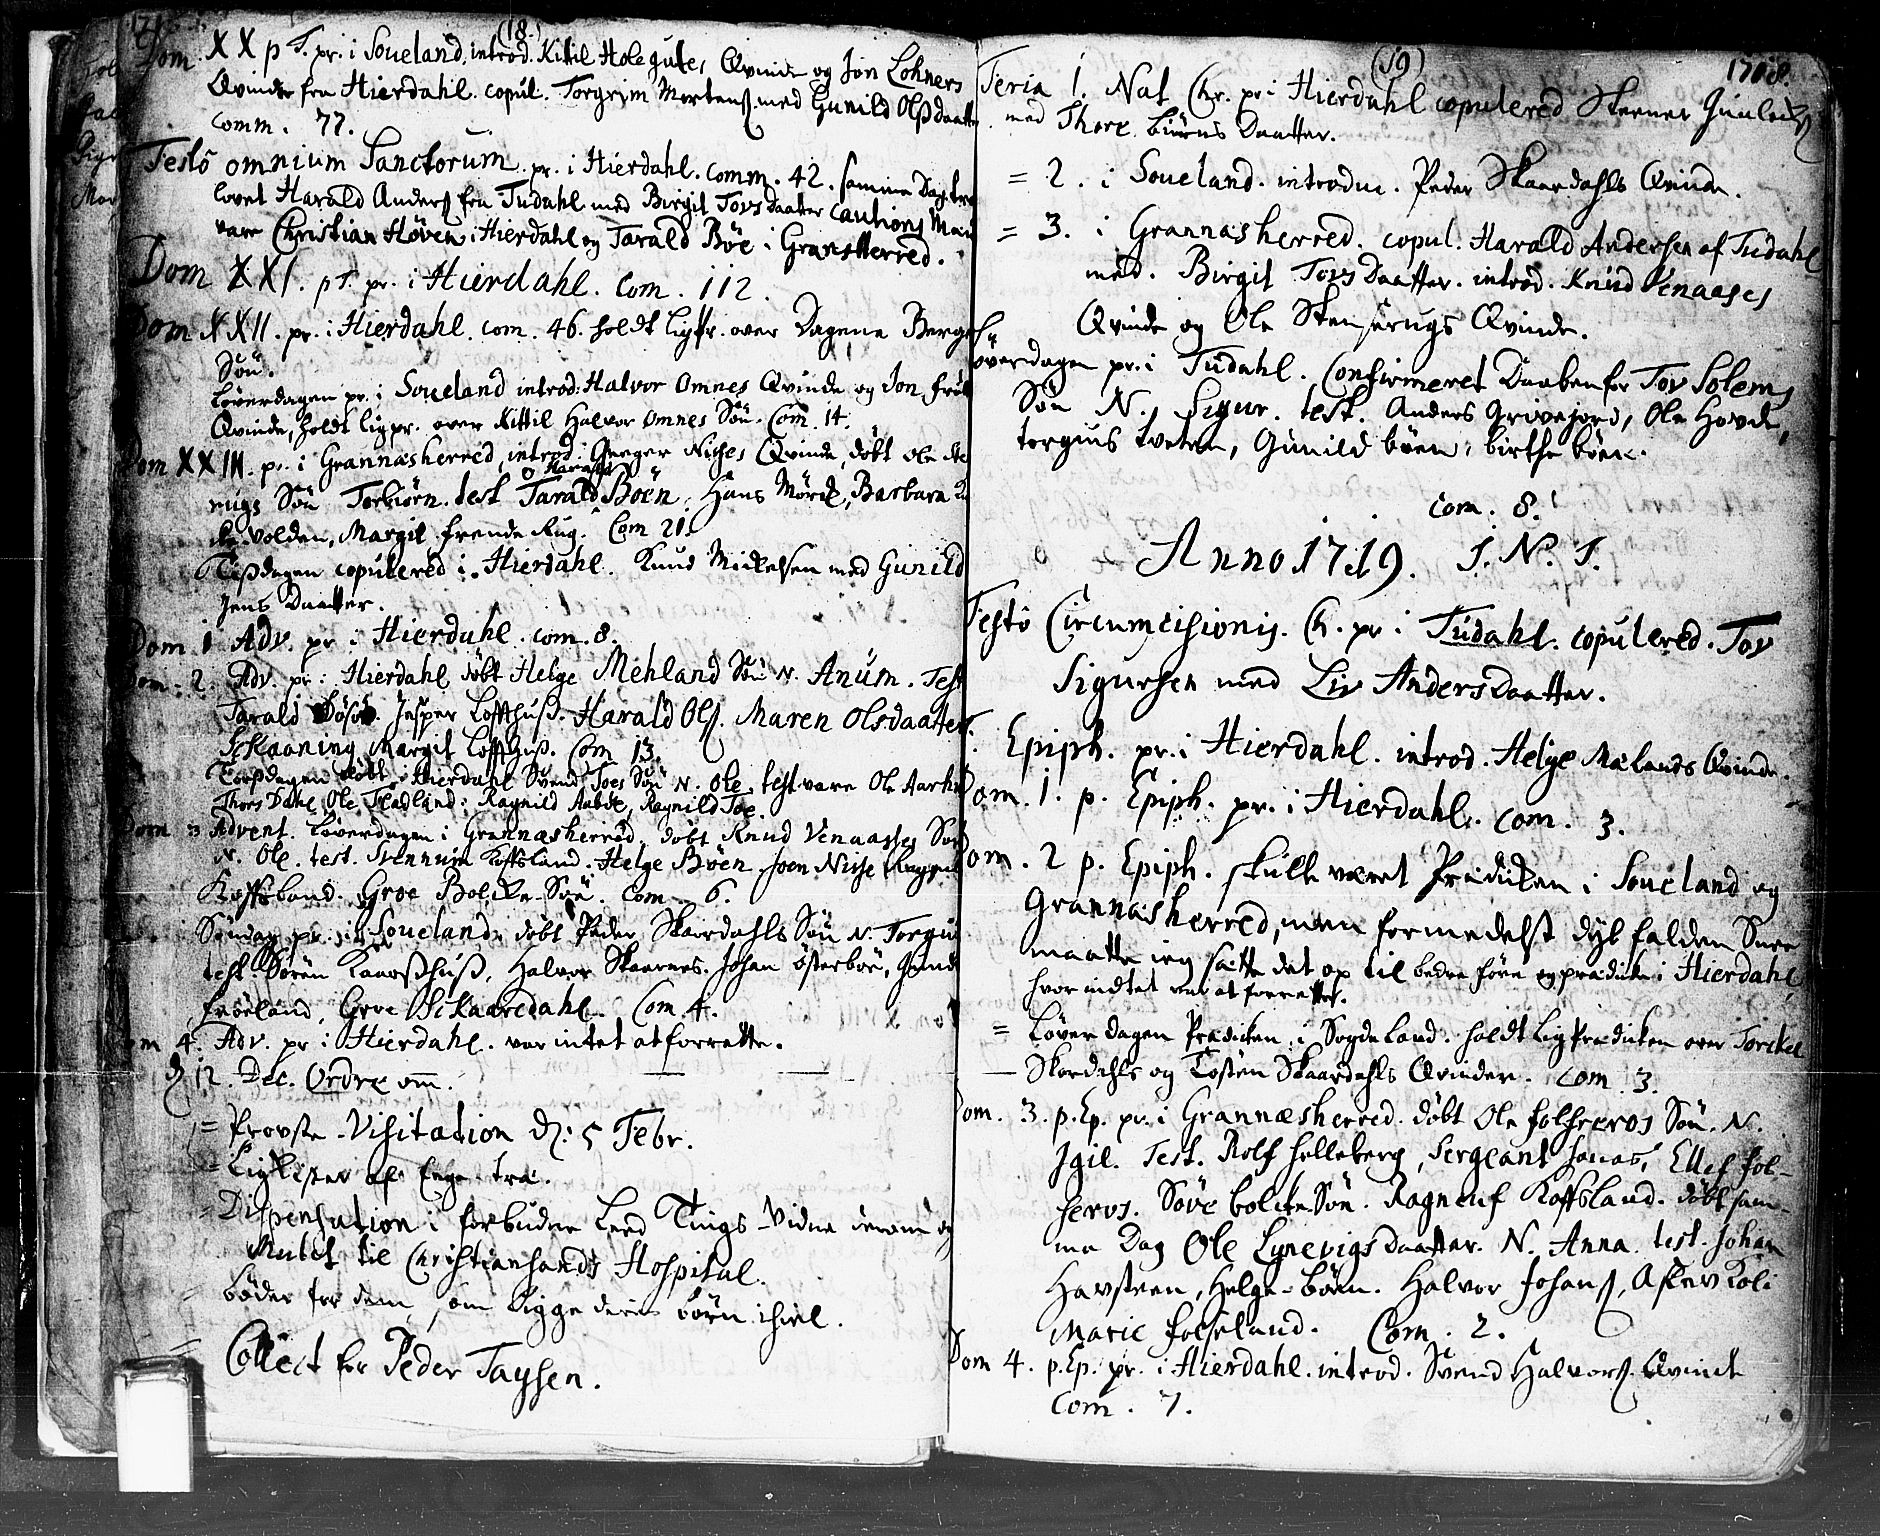 (18.)
Dom. XX p T. pr. i Soueland, introd. Kittil Holegutes Qvinde og Jon Lohners
Qvinder fra Hierdahl. copul. Torgrim Mortenß. med Gunild Olß Daatter
comm. 77.
Festo omnium Sanctorum. pr. i Hierdahl. comm. 42. samme Dag tro
lovet Harald Anderß fra Tudahl med Birgit Tovs Daatter cautions Mænd
vare Christian Høven i Hierdahl og Tarald Böe i GransHerred.
Dom XXI. p T. pr. i Hierdahl. Com. 112.
Dom XXII. pr. i Hierdahl. com. 46. holdt ligpr. over Dagene Berges
Sön.
Löverdagen pr. i Soueland introd. Halvor Omnes Qvinde og Jon
Qvinde, holdt ligpr. over Kittil Halvor Omnes Sön. Com. 14.
Dom XXIII. pr. i Grannæsherred, introd. Greger Nises Qvinde, döbt Ole
rugs Sön Torbiörn. test Tarald Böen, Hans Mörck, Barbara
volden, Margit frende Rug. Com 21.
Tißdagen copulered i Hierdahl. Knud Mickelsen med Gunild
Jens Daatter.
Dom 1 Adv. pr i Hierdahl. com. 8.
Dom. 2. Adv. pr. i Hierdahl döbt Helge Mehland Sön N. Anum. Test
Tarald Jesper Loffthuß. Harald Olß. Maren Olsdaatter.
Sckaaning Margit Loffthuß. Com 13.
Torßdagen döbt i Hierdahl Svend Toes Sön N. Ole. test vare Ole Aarhu
Thors Dahl, Ole Fladland: Ragnild Aaböe, Ragnild Toe.
Dom 3 Advent. Löverdagen i Grannæsherred, döbt Knud Venaases Sön
N. Ole. test. Svennum Kossland. Helge Böen, Joen Nise
Kossland. Groe Bolcke-Sön. Com. 6.
Söndag pr. i Soueland. döbt Peder Skaardahls Sön N. Torgiu
test Sören Kaaverßhuß, Halvor Skaarnes. Johan österböe, Gund
fröland, Groe Sckaaredahl. Com. 4.
Dom 4. Adv. pr i Hierdahl. var intet at forrette.
D 12. Dec. Ordre om.
= Provste-Visitation d: 5 Febr.
= Liglister af
= Dispensation i forbudne Leed Tings-Vidne derom og
Mulct til Christiansands Hospital.
= böder for dem, som ligge deris börn ihiel.
= Collect for Peder Taysen.
(19)
1718.
Feria 1. Nat Chr. pr. i Hierdahl copulered Steener Gunleikß
med Thore biörns Daatter.
= 2. i Soueland. introdu. Peder Skaardahls Qvinde.
= 3. i Grannæsherred. copul. Harald Andersen af Tudahl
med. Birgit Tovs Daatter. introd. Knud Venaases
Qvinde og Ole Stenserugs Qvinde.
Löverdagen pr. i Tudahl. Confirmeret Daaben for Tov Solems
Sön N. Sigur. test. Anders Grivejord, Ole Hovde,
torgius tveten, Gunild böen, birthe böen.
com. 8.
Anno 1719. I. N. I.
Festo Circumcisionis. Ch. pr i Tudahl. copulered. Tov
Sigursen med Liv Anders Daatter.
F. Epiph. pr. i Hierdahl. introd. Helge Mælands Qvinde.
Dom. 1. p. Epiph. pr. i Hierdahl. com. 3.
Dom. 2 p. Epiph. skulle været Prædicken i Soueland og
Grannæsherred, men formedelst dyb falden Snee
maatte ieg sætte det op til bedre före og prædicke i Hierdahl,
hvor indtet var at forrette.
= Löverdagen Prædicken i Sogdeland. holdt Lig Prædicken over Torckel
— Skordahls og Tosten Skaardahls Qvinder. com. 3.
Dom. 3. p. Ep. pr. i Grannæsherred. döbt Ole folseros Sön. N.
Igil. Test. Rolf Helleberg, Sergeant Jonas, Ellef fol-
seros. Söve bolcke-Sön. Ragneuf Kossland. döbt sam-
me Dag Ole Lynevigs daatter. N. Anna. test. Johan
Havsteen, Helge-böen. Halvor Johanß, Aslev Koli
Marie folseland. Com. 2.
Dom 4. p. Ep. pr. i Hierdahl. introd. Svend Halvorß. Qvinde
Com. 7.